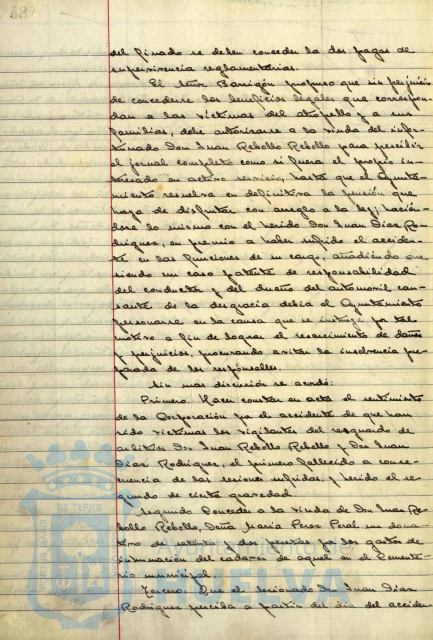 58
del finado se deben conceder la dos pagas de
supervivencia reglamentarias.
El Señor Barrigón propuso que sin perjuicio
de concederse los beneficios legales que correspon-
dan a las víctimas del atropello y a sus
familias, debe autorizarse a la viuda del infor-
tunado Don Juan Rebollo Rebollo para percibir
el jornal completo como si fuera el propio in-
teresado en activo servicio, hasta que el Ayunta-
miento resuelva en definitiva la pensión que
haya de disfrutar con arreglo a la ley, hacién-
dose lo mismo con el herido Don Juan Díaz Ro-
driguez, en premio a haber sufrido el acciden-
te en las funciones de su cargo, añadiendo que
siendo un caso patente de responsabilidad
del conductor y del dueño del automóvil cau-
sante de la desgracia debía el Ayuntamiento
personarse en la causa que se instruye por tal
motivo a fin de lograr el resarcimiento de daños
y perjuicios, procurando evitar la insolvencia pre-
parada de los responsables.
Sin mas discusión se acordó:
Primero. Hacer constar en acta el sentimiento
de la Corporación por el accidente de que han
sido víctimas los vigilantes del resguardo de
arbitrios Don Juan Rebollo Rebollo y Don Juan
Díaz Rodriguez, el primero fallecido a conse-
cuencia de las lesiones sufridas, y herido el se-
gundo de cierta gravedad.
Segundo Conceder a la viuda de Don Juan Re-
bollo Rebollo, Doña María Perez Peral un dona-
tivo de setenta y dos pesetas por los gastos de
inhumación del cadaver de aquel en el Cemente-
rio municipal.
Tercero. Que el lesionado Don Juan Díaz
Rodriguez perciba a partir del día del acciden-
HUELVA